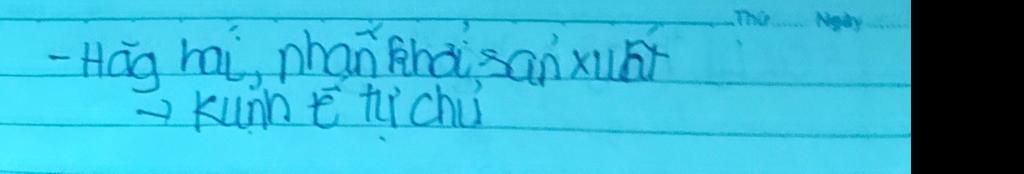 Thứ Ngày
- Hăg hái, phấn khởi sản xuất
→ Kinh tế tự chủ